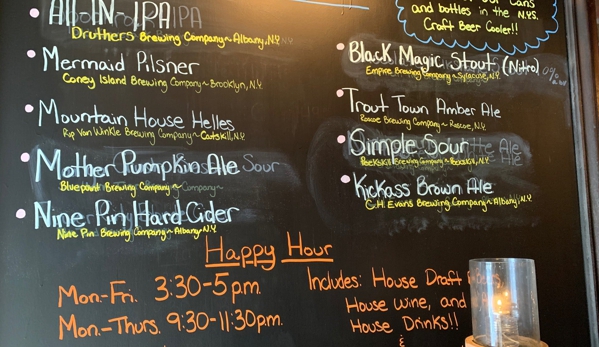 All-IN-IPA
Druthers Brewing Company ~ Albany, N.Y.
Mermaid Pilsner
Coney Island Brewing Company ~ Brooklyn, N.Y.
Mountain House Helles
Rip Van Winkle Brewing Company ~ Catskill, N.Y.
Mother Pumpkin Ale
Bluepoint Brewing Company ~
Nine Pin Hard Cider
Nine Pin Brewing Company ~ Albany N.Y.
Cans
and bottles in the N.Y.S.
Craft Beer Cooler!!
Black Magic Stout (Nitro)
Empire Brewing Company ~ Syracuse, N.Y.
Trout Town Amber Ale
Roscoe Brewing Company ~ Roscoe, N.Y.
Simple Sour
Peekskill Brewing Company ~ Peekskill, N.Y.
Kickass Brown Ale
C.H. Evans Brewing Company ~ Albany, N.Y.
Happy Hour
Mon-Fri. 3:30-5pm.
Mon.-Thurs. 9:30-11:30pm.
Includes: House Draft
House wine, and
House Drinks!!
&